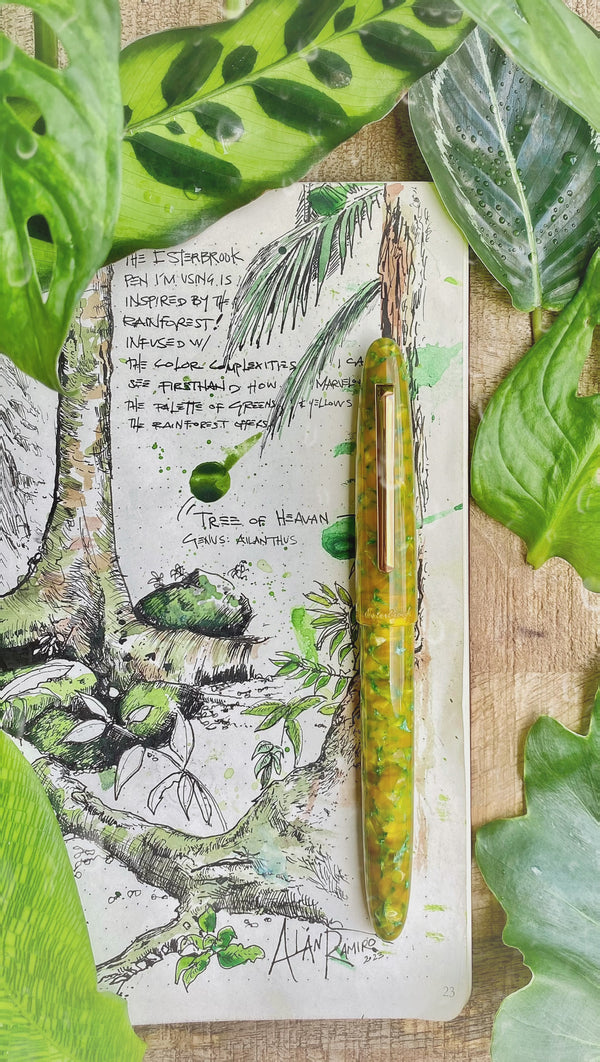 THE ESTERBROOK
PEN I'M USING IS
INSPIRED BY THE
RAINFOREST!
INFUSED W/
THE COLOR COMPLEXITIES I CA
SEE FIRSTHAND HOW MARVELO
THE PALETTE OF GREENS & YELLOWS
THE RAINFOREST OFFERS
"TREE OF HEAVAN
GENUS: AILANTHUS
Esterbrook
ALAN RAMIRO
2023
23